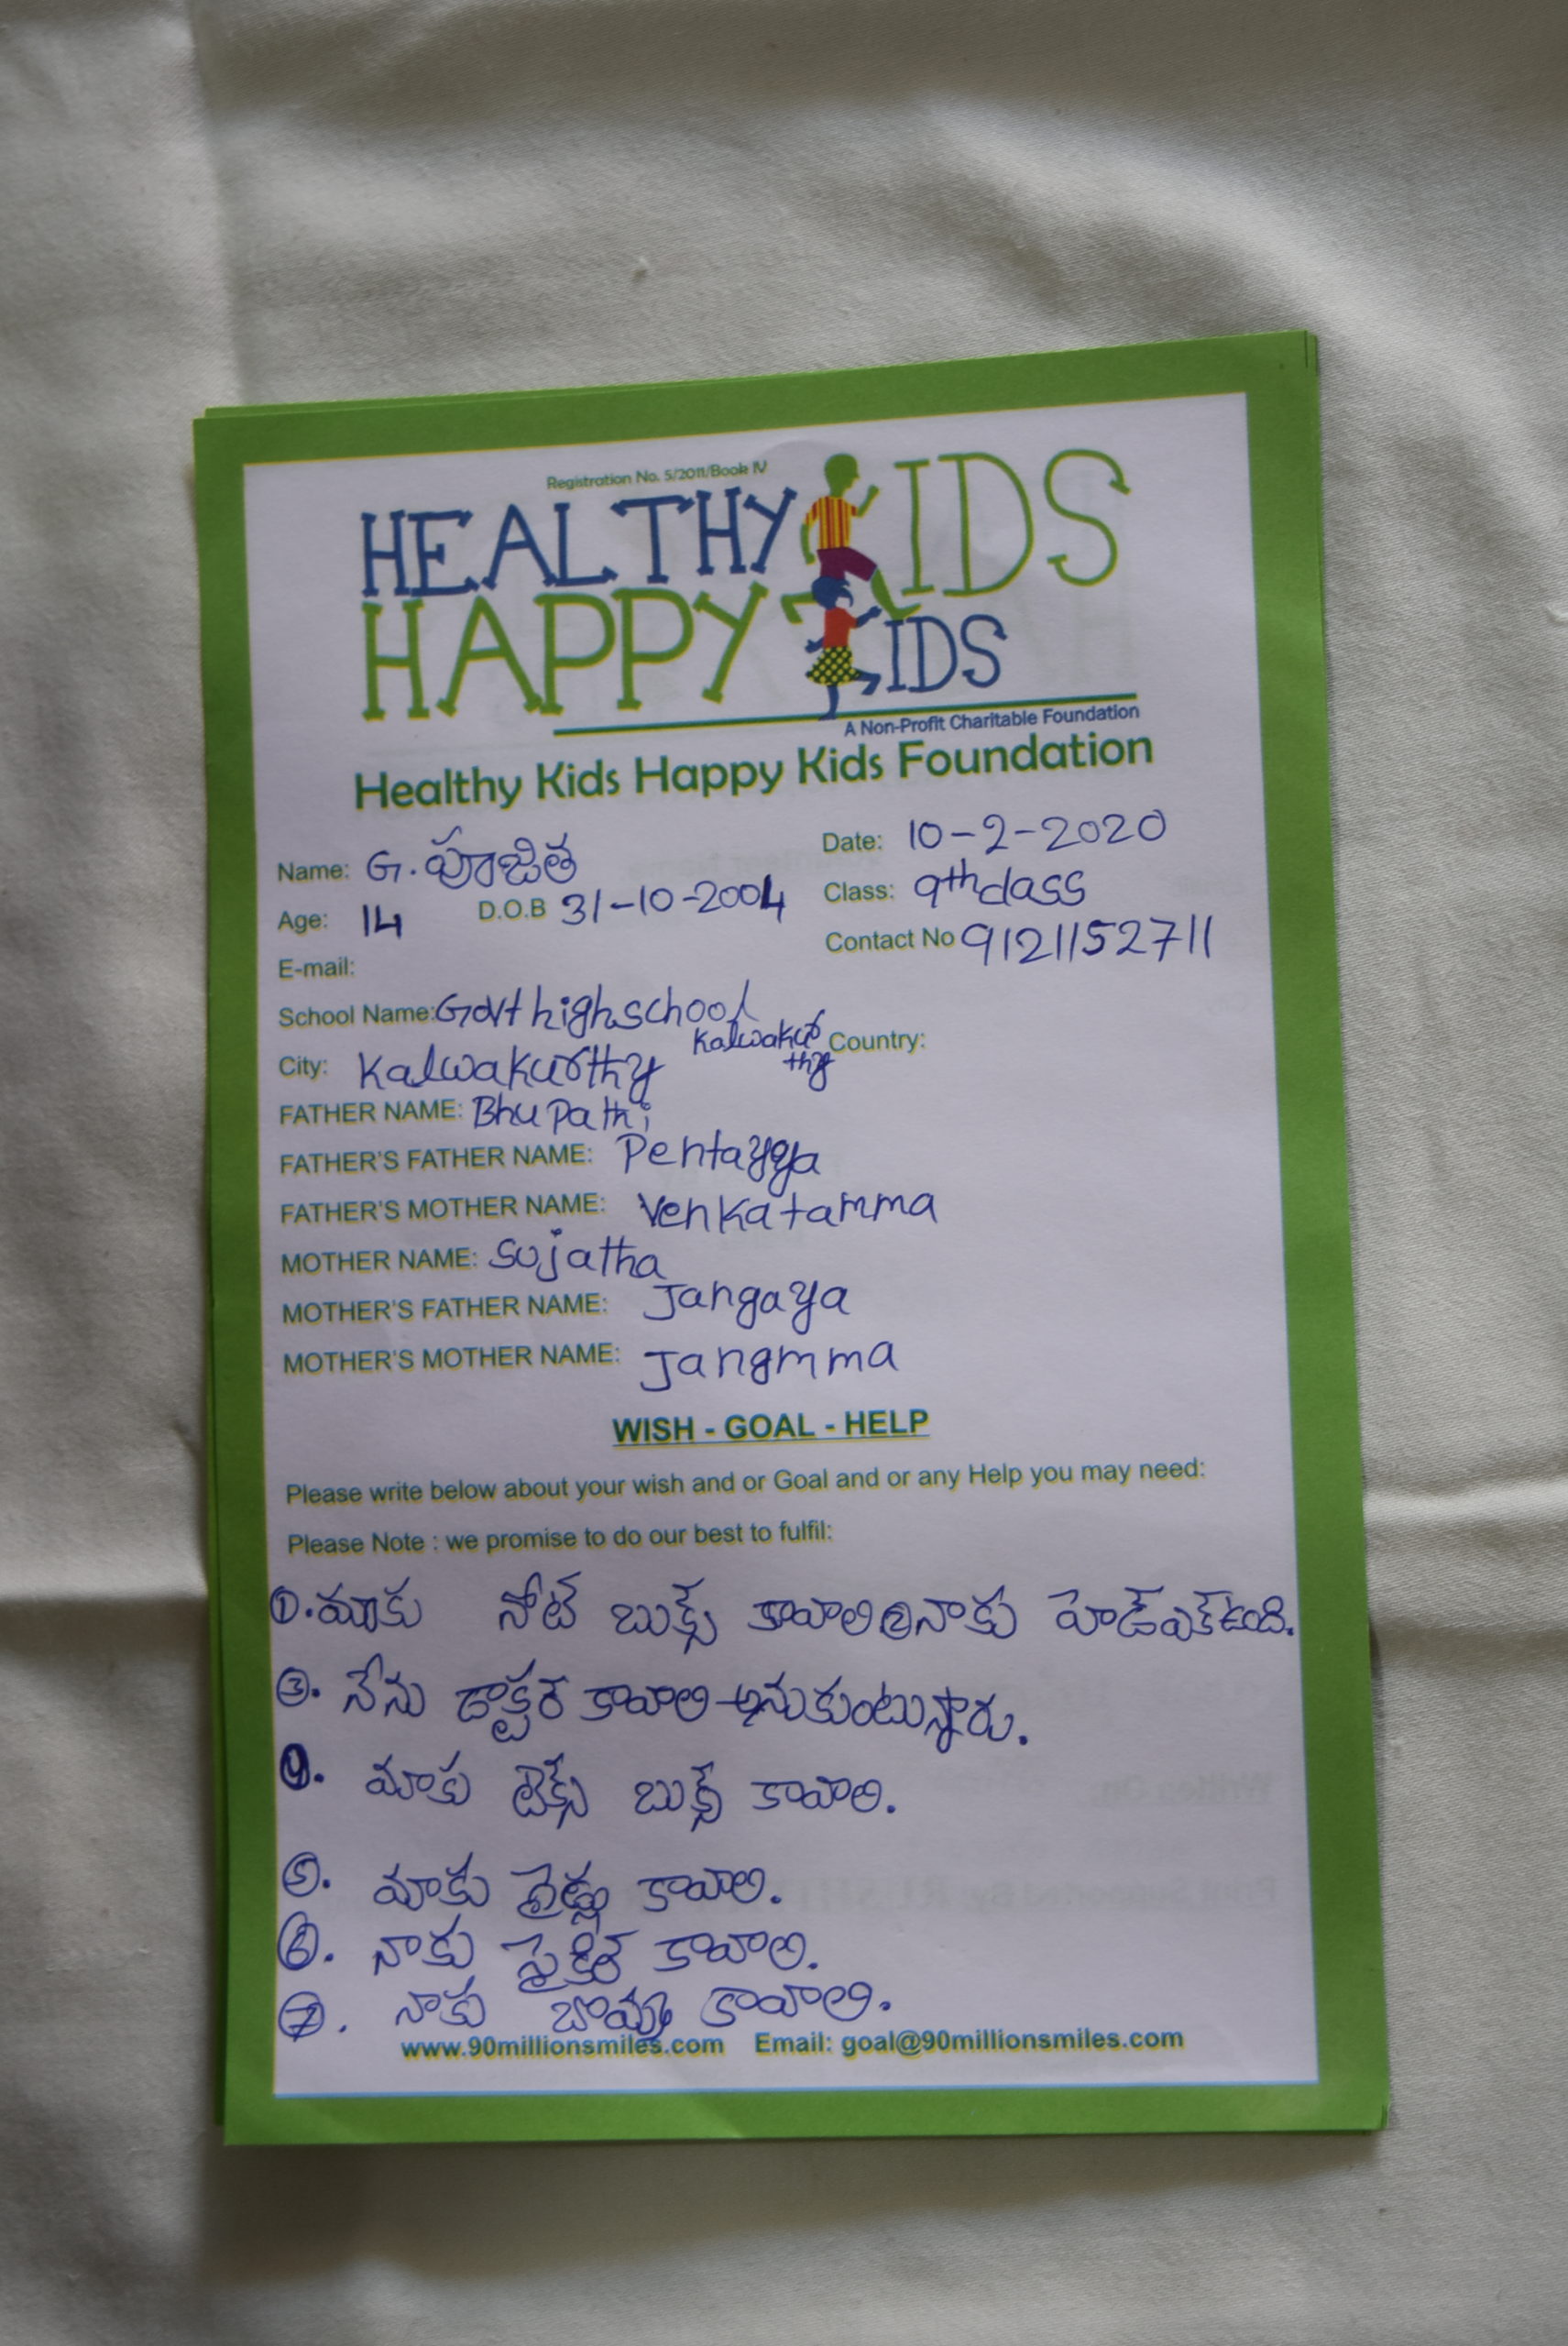 Registration No. 5/2011/Book IV
HEALTHY KIDS
HAPPY KIDS
A Non-Profit Charitable Foundation
Healthy Kids Happy Kids Foundation
Name: G. పూజిత Date: 10-2-2020
Age: 14 D.O.B 31-10-2004 Class: 9th class
E-mail: Contact No 9121152711
School Name: Govt high school
Kalwakur
thy
City: Kalwakurthy Country:
FATHER NAME: Bhu Pathi
FATHER'S FATHER NAME: Pentayya
FATHER'S MOTHER NAME: Venkatamma
MOTHER NAME: Sujatha
MOTHER'S FATHER NAME: Jangaya
MOTHER'S MOTHER NAME: Jangmma
WISH - GOAL - HELP
Please write below about your wish and or Goal and or any Help you may need:
Please Note : we promise to do our best to fulfil:
①. మాకు నోట్ బుక్స్ కావాలి ② నాకు హెడ్ఎక్ ఉంది.
③. నేను డాక్టర్ కావాలి అనుకుంటున్నారు.
4. మాకు టెక్స్ బుక్స్ కావాలి.
⑤. మాకు కావాలి.
⑥. నాకు సైకిల్ కావాలి.
⑦. నాకు బొమ్మ కావాలి.
www.90millionsmiles.com Email: goal@90millionsmiles.com